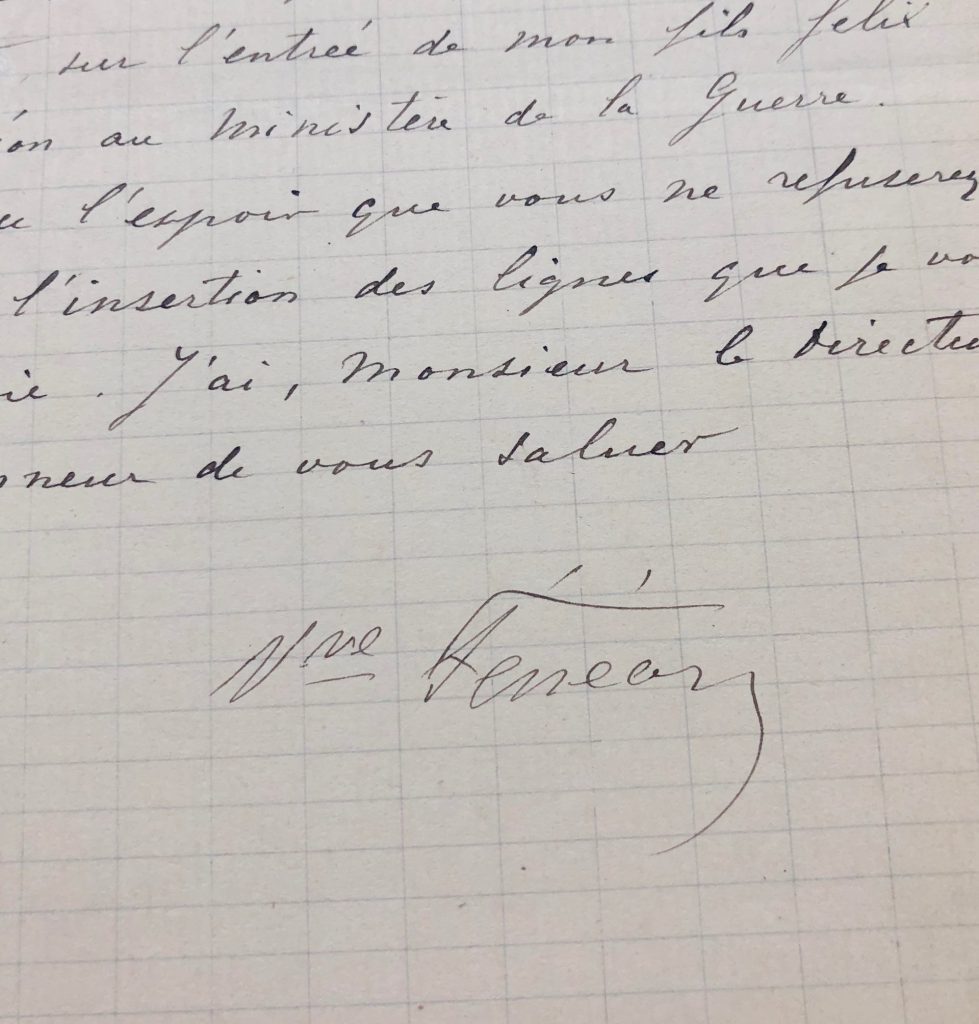 sur l'entreé de mon fils felix
éon au Ministère de la Guerre.
l'espoir que vous ne refuserez
l'insertion des lignes que je vo
ie. J'ai, Monsieur le Directeu
nneur de vous saluer
Vve Fénéon